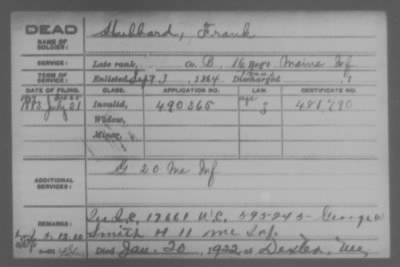 DEAD
NAME OF SOLDIER:
Hubbard, Frank
SERVICE:
Late rank, Co. B, 16 Regt Maine Inf
TERM OF SERVICE:
Enlisted Sept 3, 1864 Discharged
DATE OF FILING.
CLASS.
APPLICATION NO.
LAW.
CERTIFICATE NO.
1883 July 21
Invalid,
490365
Widow,
Minor,
ADDITIONAL SERVICES:
G 20 Me Inf
REMARKS:
17661 W.C. 595245 George W
Smith H 11 Me Inf.
Died Jan. 20, 1922, at Dexter, Me,